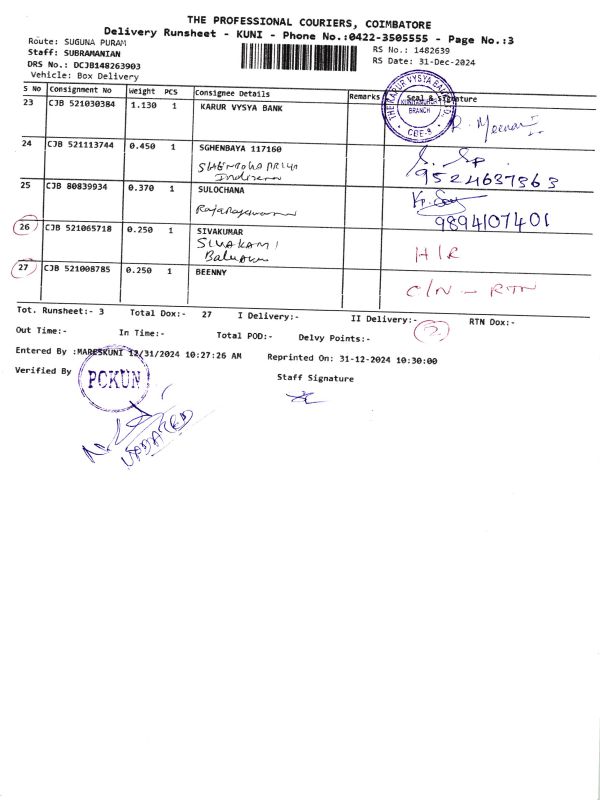 THE PROFESSIONAL COURIERS, COIMBATORE
Delivery Runsheet - KUNI - Phone No.:0422-3505555 - Page No.:3
Route: SUGUNA PURAM
RS No.: 1482639
Staff: SUBRAMANIAN
RS Date: 31-Dec-2024
DRS No.: DCJB148263903
Vehicle: Box Delivery
S No Consignment No Weight PCS Consignee Details Remarks Seal & Signature
23 CJB 521030384 1.130 1 KARUR VYSYA BANK
THE KARUR VYSYA BANK LTD.
BRANCH
CBE-8
R. Meena
24 CJB 521113744 0.450 1 SGHENBAYA 117160
9524637363
25 CJB 80839934 0.370 1 SULOCHANA
9894107401
26 CJB 521065718 0.250 1 SIVAKUMAR
SIVAKAMI
H/R
27 CJB 521008785 0.250 1 BEENNY
C/N - RTN
Tot. Runsheet:- 3 Total Dox:- 27 I Delivery:- II Delivery:- 2 RTN Dox:-
Out Time:- In Time:- Total POD:- Delvy Points:-
Entered By :MARESKUNI 12/31/2024 10:27:26 AM Reprinted On: 31-12-2024 10:30:00
Verified By
PCKUN
Staff Signature
UPDATED